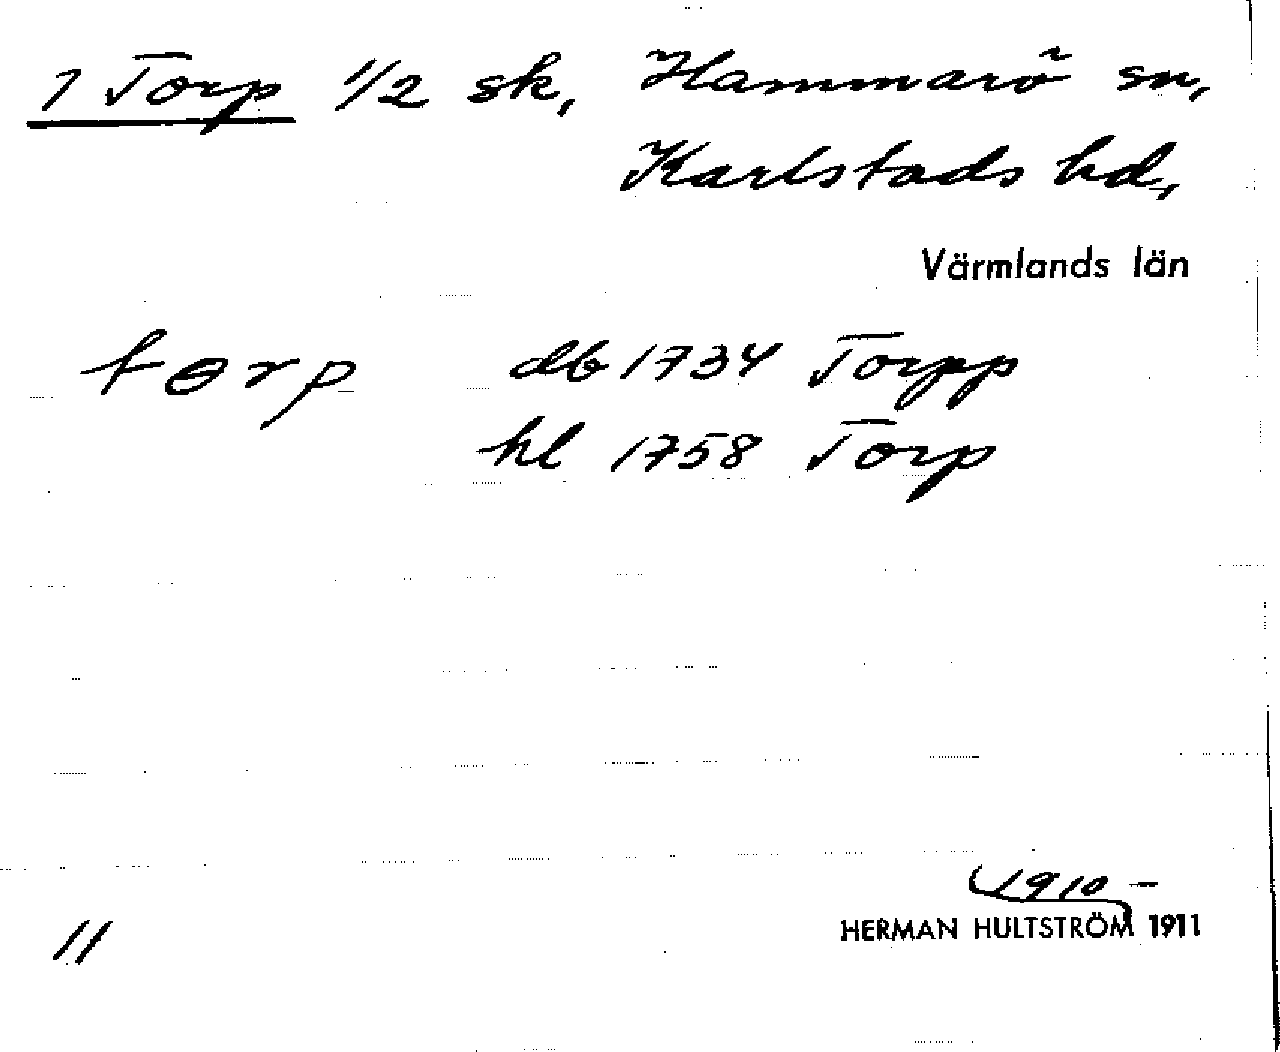 1 Torp 1/2 sk, Hammarö sn,
Karlstads hd,
Värmlands län
torp db 1734 Torpp
hl 1758 Torp
1910-
HERMAN HULTSTRÖM 1911
11